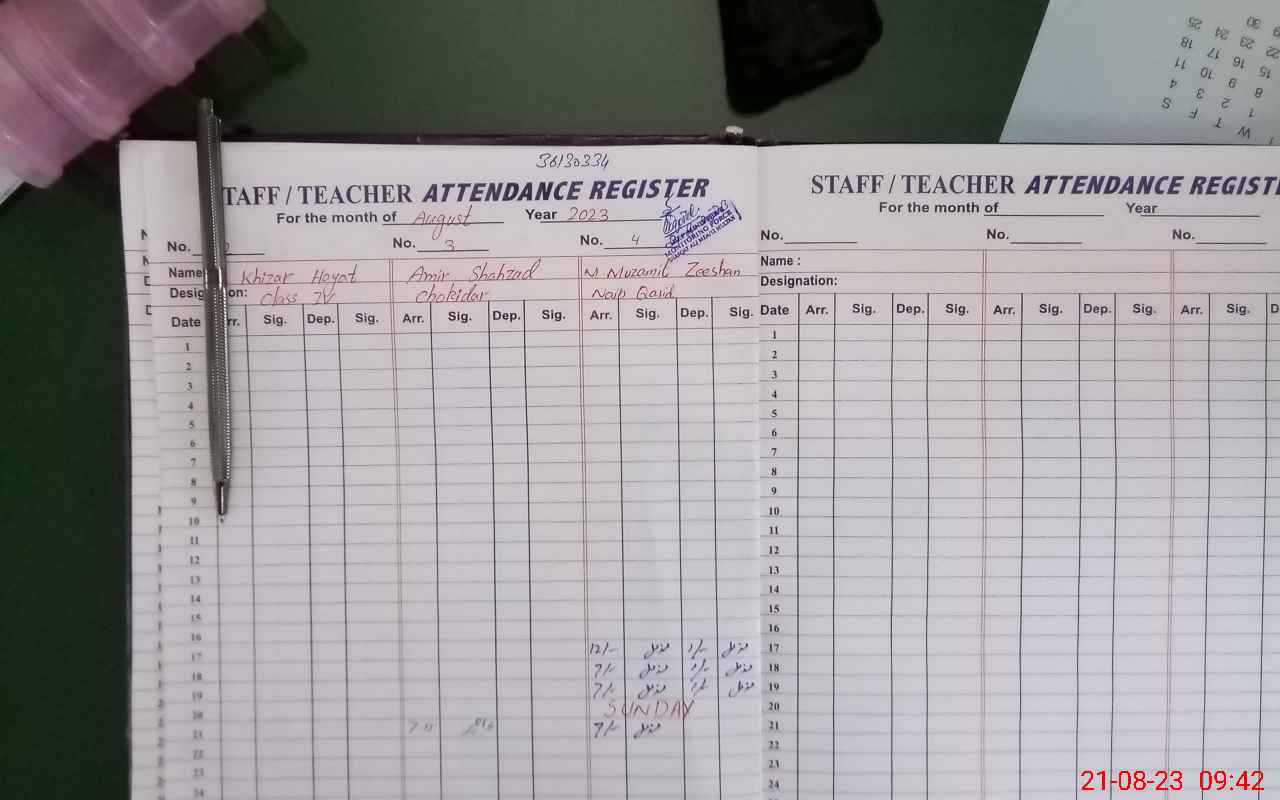 36130334
STAFF / TEACHER ATTENDANCE REGISTER
For the month of August Year 2023
MONITORING FORCE
No. 2 No. 3 No. 4
Name Khizar Hayat Amir Shahzad M. Muzamil Zeeshan
Designation: Class IV Chokidar Naib Qasid
Date Arr. Sig. Dep. Sig. Arr. Sig. Dep. Sig. Arr. Sig. Dep. Sig.
1
2
3
4
5
6
7
8
9
10
11
12
13
14
15
16
17 12/- 1/-
18 7/- 1/-
19 7/- 1/-
20 SUNDAY
21 7/-
22
23
24
STAFF / TEACHER ATTENDANCE REGISTE
For the month of Year
No. No. No.
Name :
Designation:
Date Arr. Sig. Dep. Sig. Arr. Sig. Dep. Sig. Arr. Sig. D
1
2
3
4
5
6
7
8
9
10
11
12
13
14
15
16
17
18
19
20
21
22
23
24
W T F S
1 2 3 4
8 9 10 11
15 16 17 18
22 23 24 25
30
21-08-23 09:42